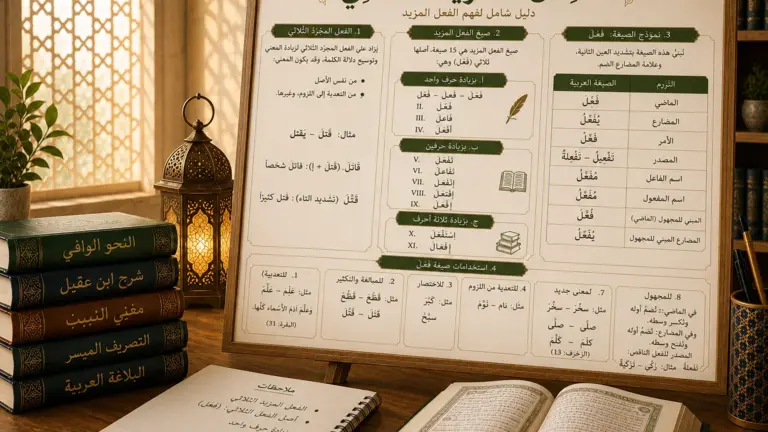 دليل شامل لفهم الفعل المزيد
1. الفعل المجرّد الثّلاثي
يُزاد على الفعل المجرّد الثّلاثي لزيادة المعنى
وتوسيع دلالة الكلمة، وقد يكون المعنى:
• من نفس الأصل
• من التعدية إلى اللزوم، وغيرها.
مثال: قَتَلَ – يَقتل
قَاتَلَ. (قَتَلَ + إ): قاتلَ شخصاً
قَتَّلَ (تشديد التاء): قتل كثيرًا
2. صيغ الفعل المزيد
صيغ الفعل المزيد هي 15 صيغة، أصلها
ثلاثي (فَعَلَ) وهي:
أ. بزيادة حرف واحد
فَعَلَ – فَعِلَ – فَعُلَ
II. فَعّل
III. فاعل
IV. أَفْعَل
ب. بزيادة حرفين
V. تَفَعّل
VI. تَفاعل
VII. اِنْفَعَل
VIII. اِفْتَعَل
IX. اِفْعَلّ
ج. بزيادة ثلاثة أحرف
X. اِسْتَفْعَل
XI. اِفعَالّ
3. نموذج الصيغة: فَعّلَ
تُبنى هذه الصيغة بتشديد العين الثانية،
وعلامة المضارع الضم.
الصيغة العربية
الماضي
فَعّلَ
المضارع
يُفَعّلُ
الأمر
فَعّلْ
المصدر
تَفْعِيلٌ – تَفْعِلَةٌ
اسم الفاعل
مُفَعّلٌ
اسم المفعول
مُفَعّلٌ
المبني للمجهول (الماضي)
فُعّلَ
المضارع المبني للمجهول
يُفَعّلُ
4. استخدامات صيغة فَعّلَ
1. للتعدية)
مثل: عَلِمَ – عَلَّمَ
(البقرة: 31)
2. للمبالغة والتكثير
مثل: قَطَعَ – قَطَّعَ
قَتَلَ – قَتَّلَ
3. للاختصار
مثل: كَبَّرَ
سبّحَ
4. للتعدية من اللزوم
مثل: نَامَ – نَوَّمَ
7. لمعنى جديد
مثل: سخَرَ – سخّرَ
صلَى – صلّى
كَلَمَ – كَلَّمَ
(الزخرف: 13)
8. للمجهول
في الماضي: تُضَمّ أوله
وتُكسر وسطه.
وفي المضارع: تُضَمّ أوله
وتُفتح وسطه.
المصدر للفعل الناقص:
تَفعلَة مثال: زكّى – تَزْكِيَة
النحو الوافي
شرح ابن عقيل
مغني النبيب
التصريف الميسر
البلاغة العربية
ملاحظات
• الفعل المزيد الثلاثي
• أصل الفعل الثلاثي: (فَعَلَ)
زيادة حرف واحد